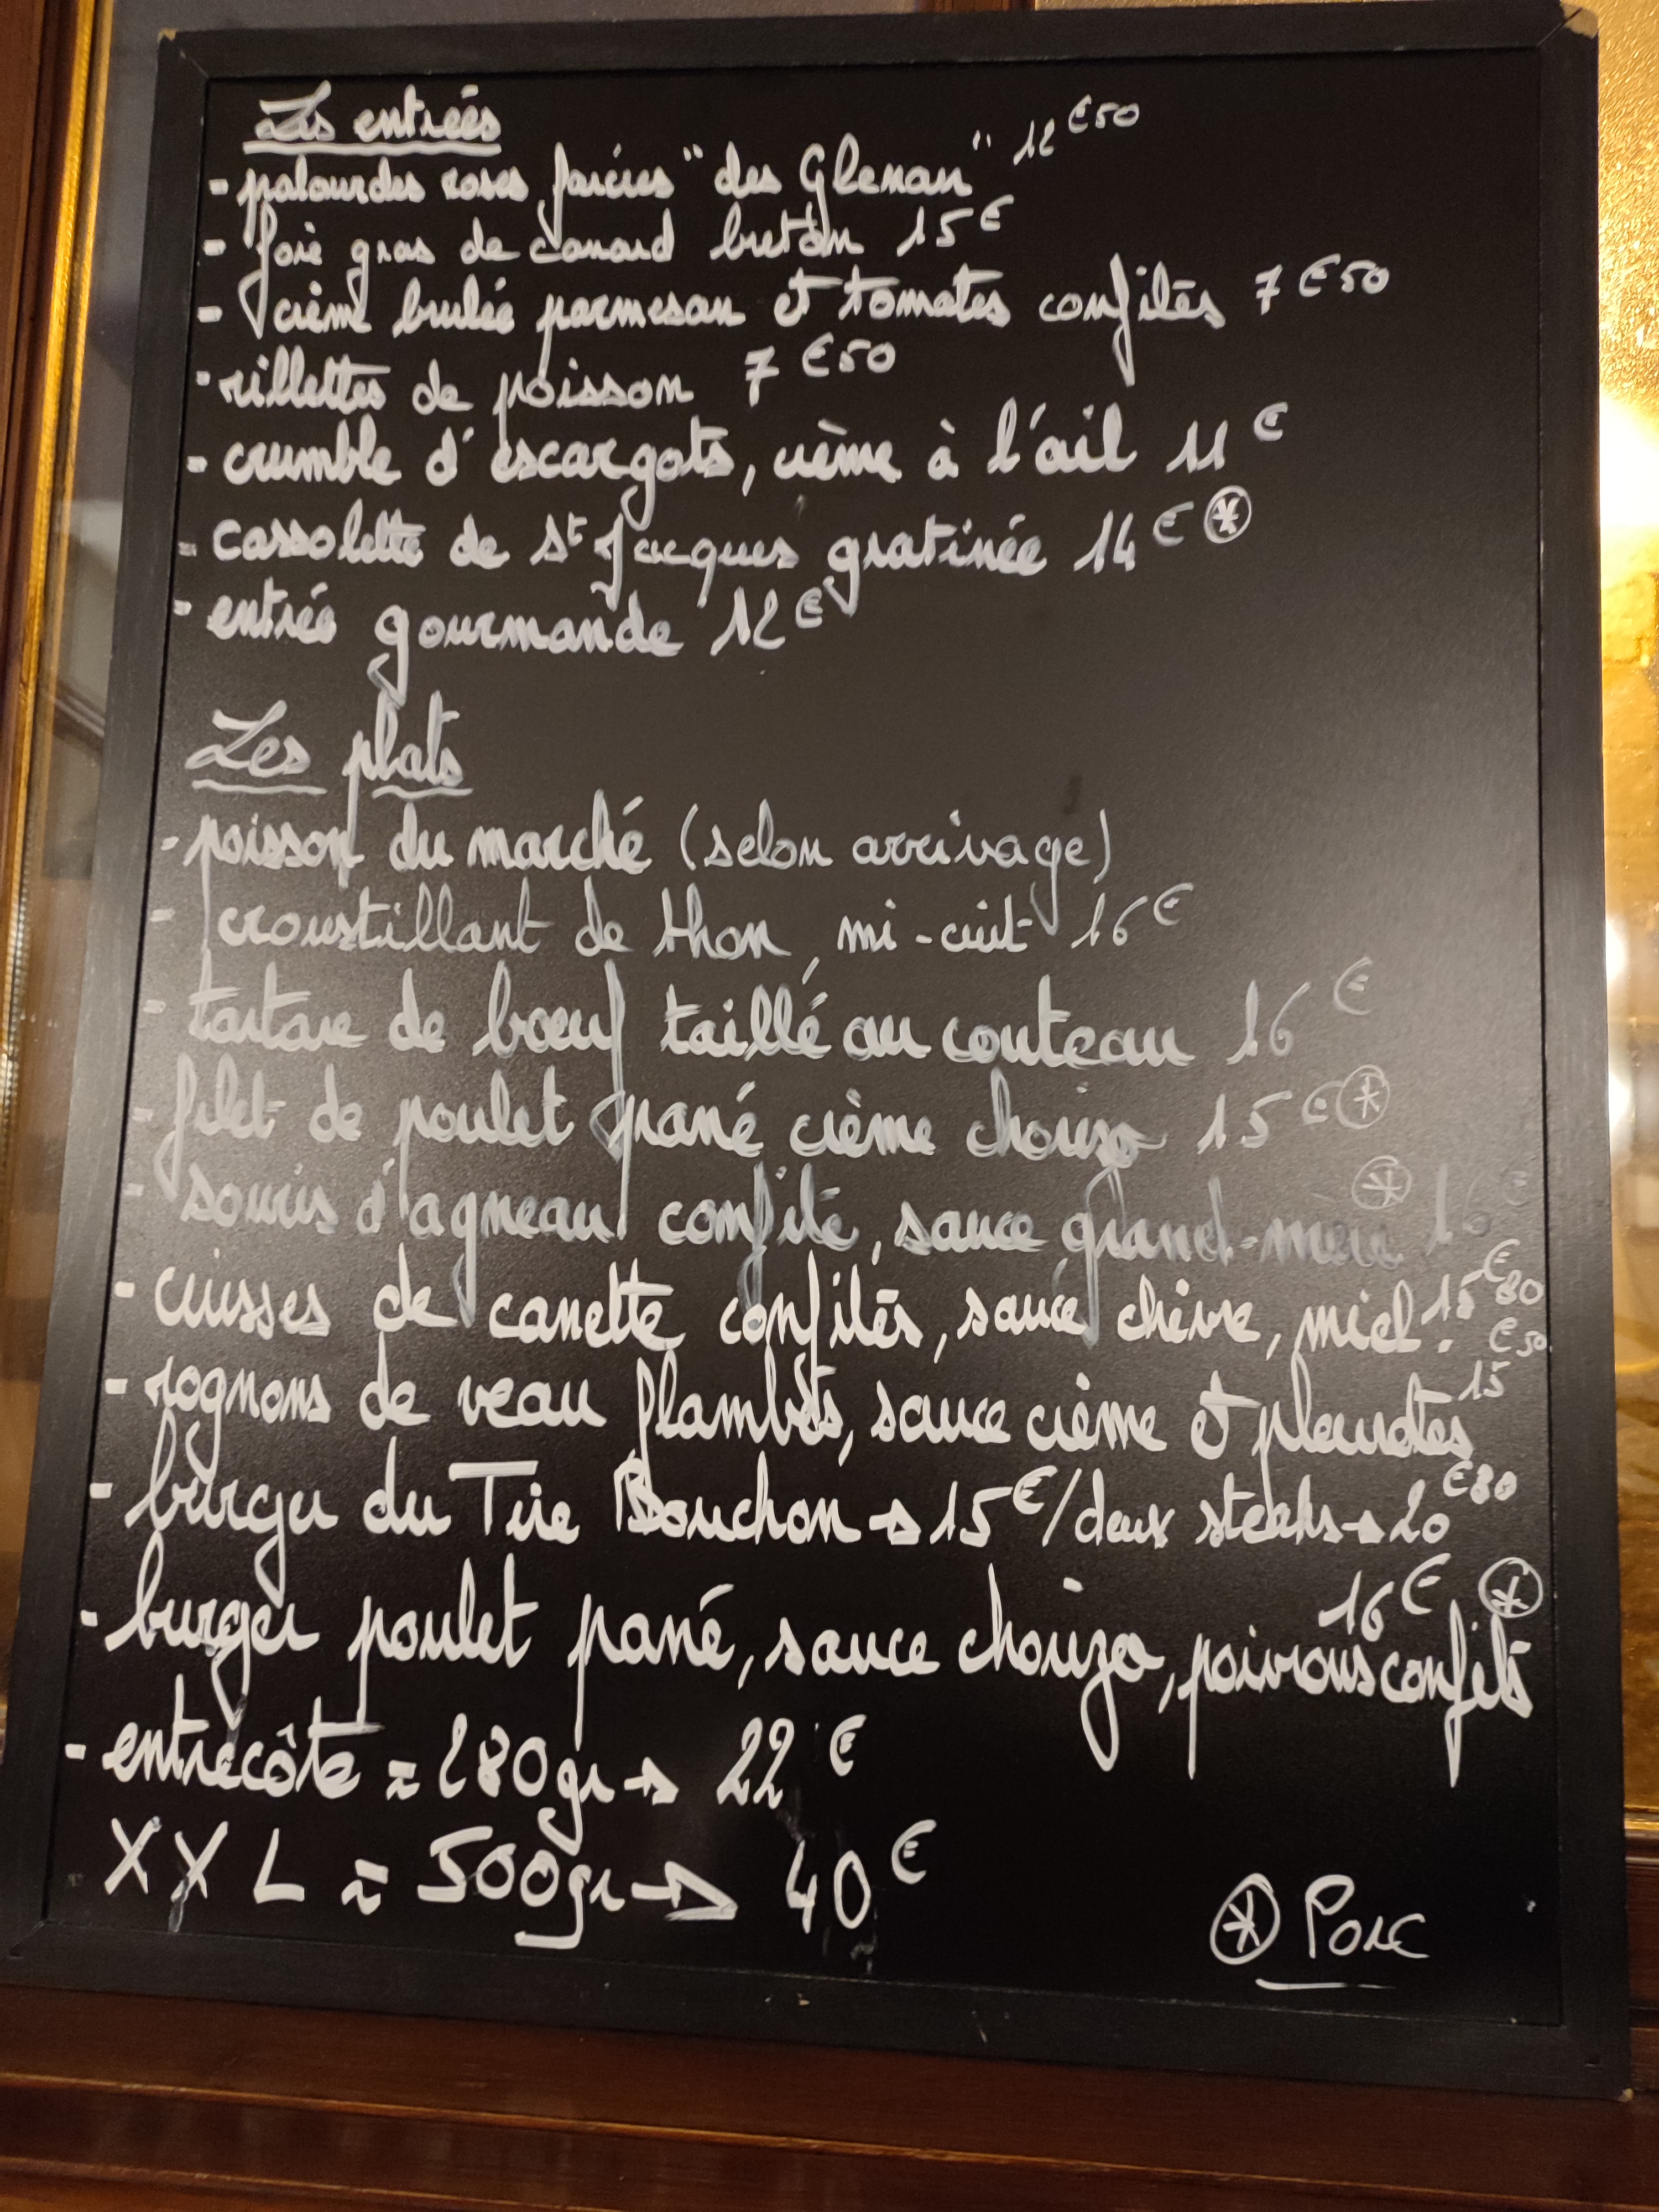 Les entrées
- palourdes roses farcies "des Glenan" 12€50
- foie gras de canard breton 15€
- crème brulée parmesan et tomates confites 7€50
- rillettes de poisson 7€50
- crumble d'escargots, crème à l'ail 11€
- cassolette de St Jacques gratinée 14€ *
- entrée gourmande 12€
Les plats
- poisson du marché (selon arrivage)
- croustillant de thon, mi-cuit 16€
- tartare de bœuf taillé au couteau 16€
- filet de poulet pané crème chorizo 15€ *
- souris d'agneau confite, sauce grand-mère * 16€
- cuisses de canette confites, sauce chèvre, miel 15€80
- rognons de veau flambés, sauce crème et pleurotes 15€50
- burger du Tire Bouchon → 15€/deux steaks → 20€80
- burger poulet pané, sauce chorizo, poivrons confits 16€ *
- entrecôte ≈ 280gr → 22€
XXL ≈ 500gr → 40€
* Porc